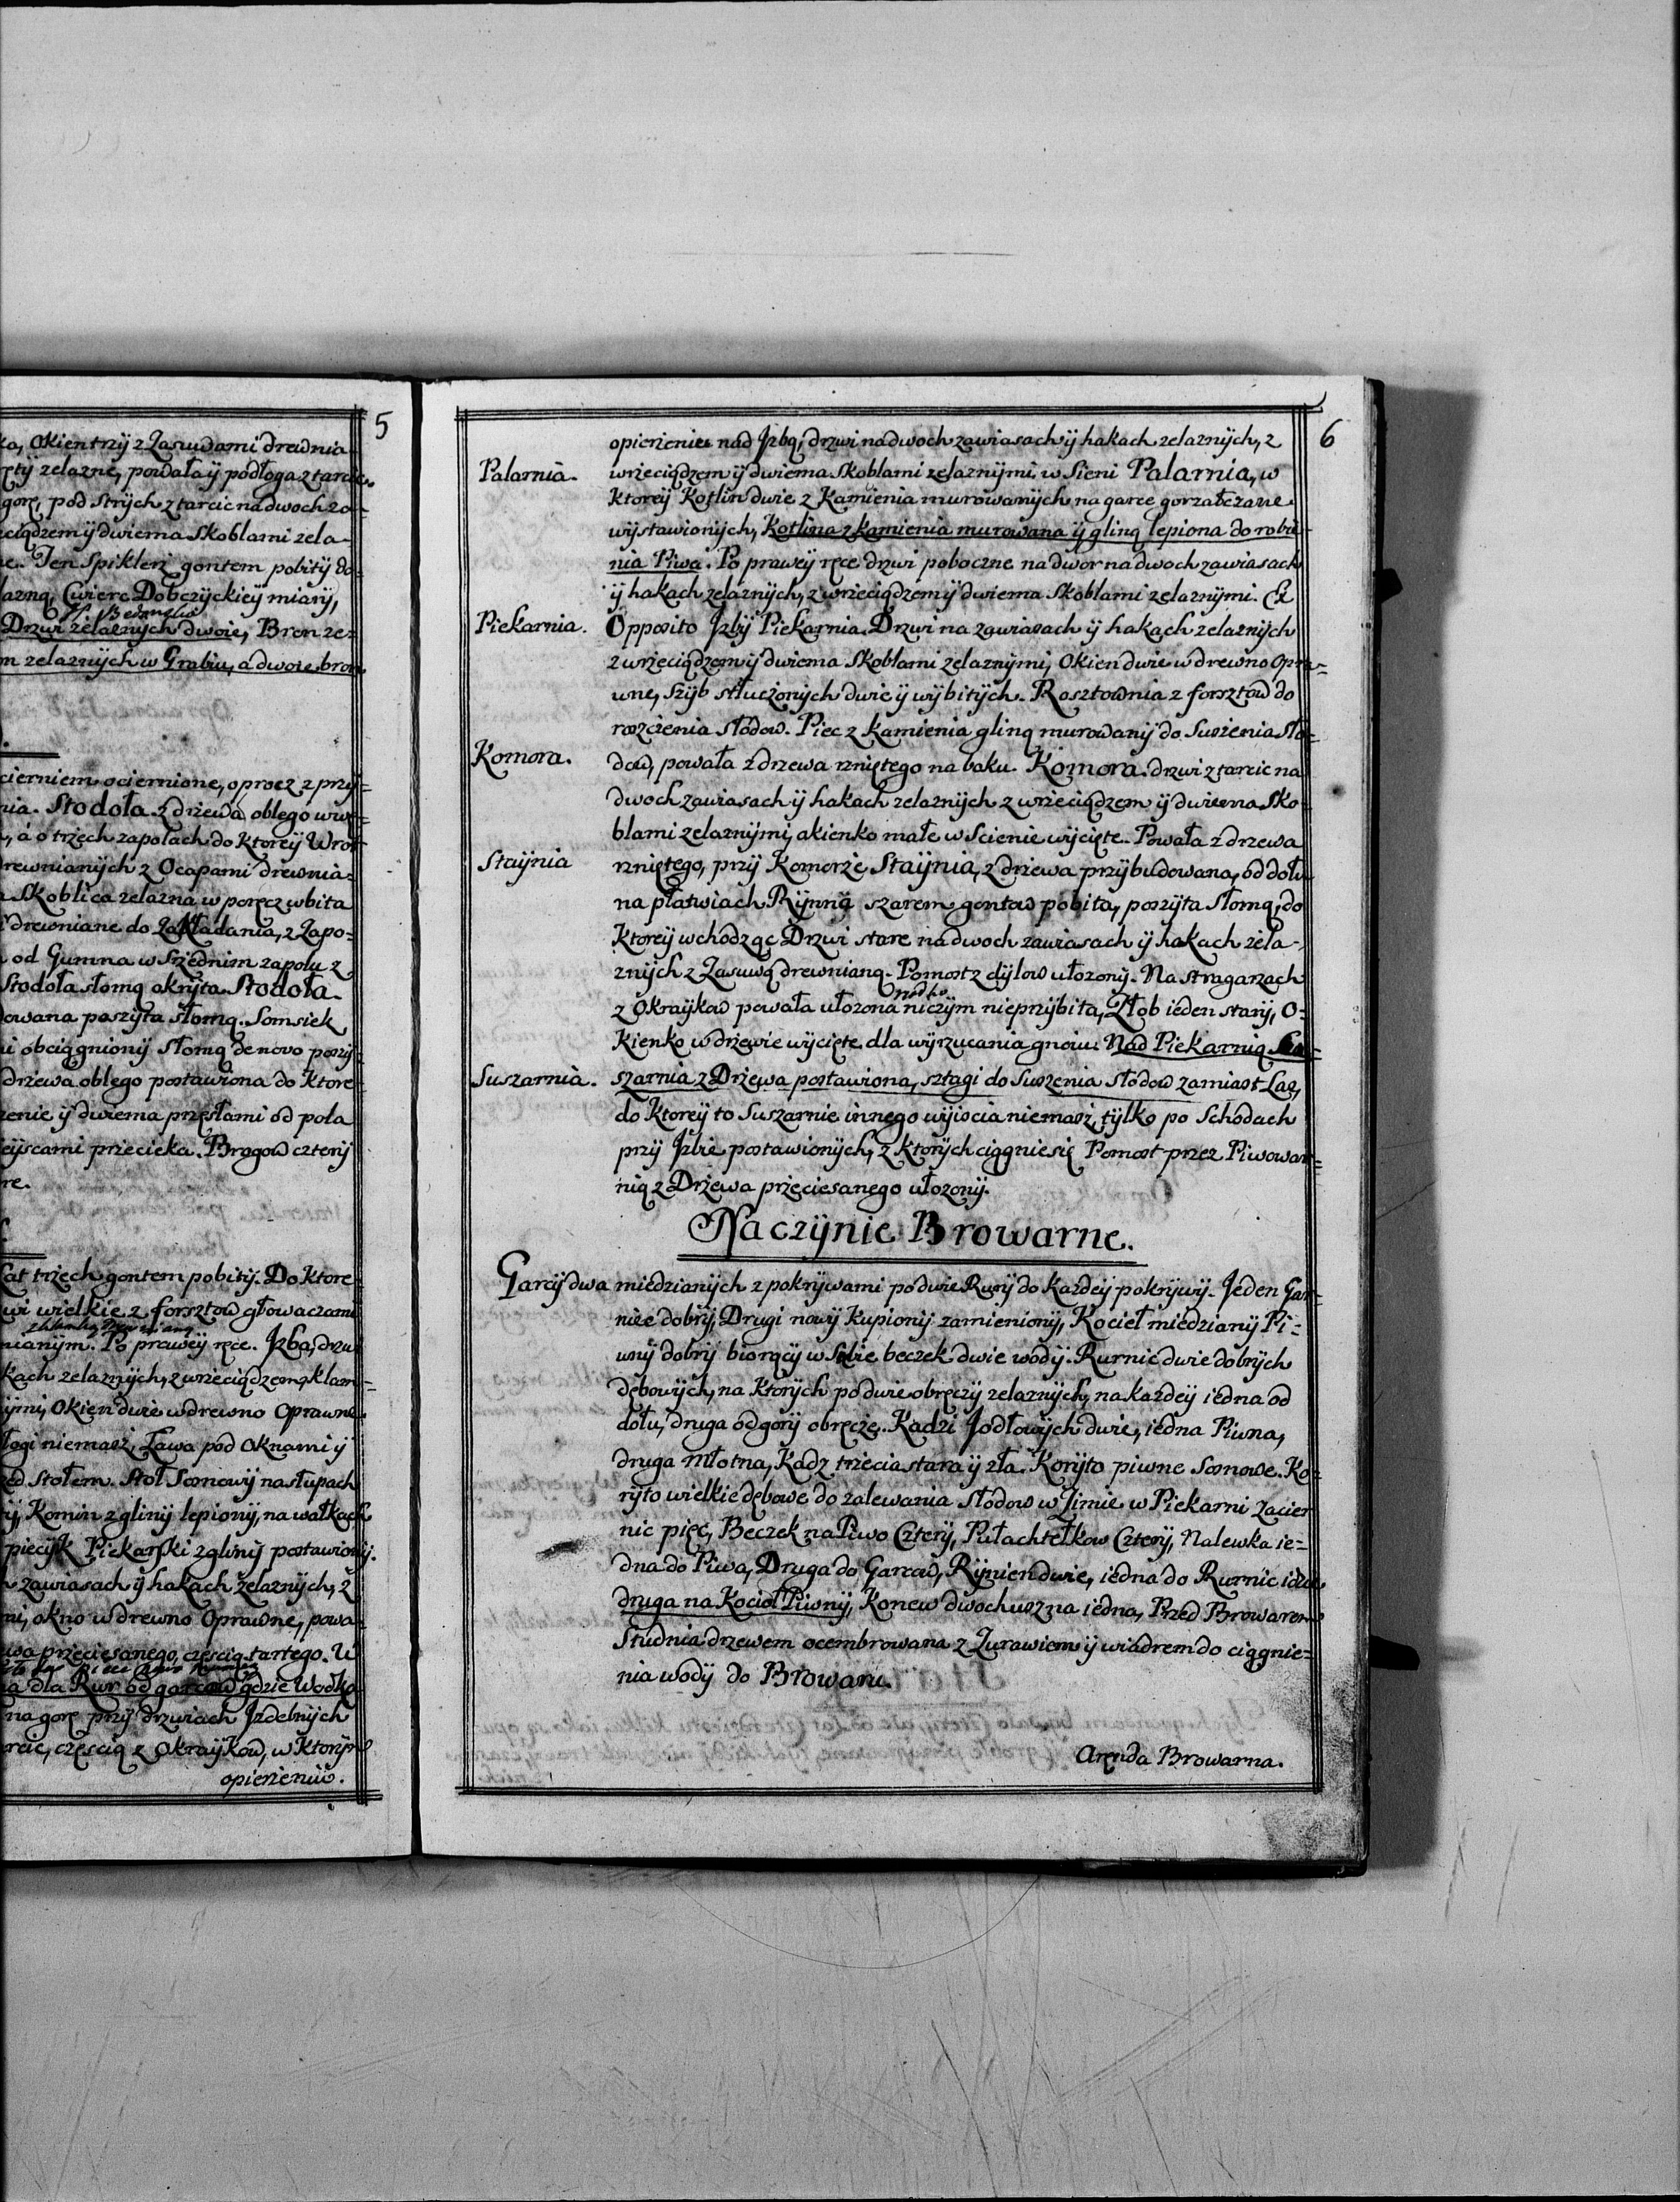 5
ka, Okien trzÿ z Zasuwami drewnia-
rętÿ zelazne, powała ÿ podłoga z tarcic.
gorę, pod Strÿch z tarcic na dwoch za-
eciądzem ÿ dwiema Skoblami zela-
ne. Ten Spiklerz gontem pobitÿ do-
lazną, Cwierc Dobczÿckieÿ miarÿ,
Drzwi zelaznÿch dwoie, Bron ze-
m zelaznÿch w Grabiu, a dwoie bron
cierniem ociernione, oprocz z przÿ-
nia. Stodoła. z drzewa oblego w wę-
, á o trzech zapolach do Ktoreÿ Wrot
drewnianÿch z Ocapami drewnia-
a Skoblica zelazna w poręcz wbita
drewniane do Zakładania, z Zapo-
od Gumna w Srzednim zapolu z
Stodoła słomą okrÿta. Stodoła.
dowana poszÿta słomą. Somsiek
i obciągnionÿ Słomą de novo poszÿ-
drzewa oblego postawiona do Ktore-
zenie ÿ dwiema przęsłami od pola
eÿscami przecieka. Brogow czterÿ
re.
Lat trzech gontem pobitÿ. Do Ktore-
wi wielkie z forsztow głowaczami
nianÿm. Po praweÿ ręce. Jzba, drzw
kach zelaznÿch, z wrzeciądzem, klam-
ÿmi, Okien dwie w drewno Oprawne
łogi niemasz, Ława pod Oknami ÿ
zed Stołem. Stoł Sosnowÿ na słupach
ÿ, Komin z glinÿ lepionÿ, na wałkach
piecÿk Piekarski z glinÿ postawionÿ.
h zawiasach ÿ hakach zelaznÿch, z
mi, okno w drewno Oprawne, powa-
wa przeciesanego, częscią tartego. W
a dla Rur od garcow gdzie Wodka
na gorę przÿ drzwiach Jzdebnÿch
rcic, częscią z Okraÿkow, w Ktorÿm
opierzeniu.
6
opierzeniu nad Jzbą, drzwi na dwoch zawiasach ÿ hakach zelaznÿch, z
Palarnia.
wrzeciądzem ÿ dwiema Skoblami zelaznÿmi. w Sieni Palarnia, w
Ktoreÿ Kotlin dwie z Kamienia murowanÿch na garce gorzałczane
wÿstawionÿch, Kotlina z kamienia murowana ÿ gliną lepiona do robie-
nia Piwa. Po praweÿ ręce drzwi poboczne na dwor na dwoch zawiasach
ÿ hakach zelaznÿch, z wrzeciądzem ÿ dwiema Skoblami zelaznÿmi. Ex
Piekarnia.
Opposito Jzbÿ Piekarnia. Drzwi na zawiasach ÿ hakach zelaznÿch
z wrzeciądzem ÿ dwiema Skoblami zelaznÿmi, Okien dwie w drewno Opra-
wne, szÿb stłuczonÿch dwie ÿ wÿbitÿch. Rosztownia z forsztow do
roszczenia Słodow. Piec z kamienia gliną murowanÿ do Suszenia Sło-
Komora.
dow, powała z drzewa rzniętego na baku. Komora. drzwi z tarcic na
dwoch zawiasach ÿ hakach zelaznÿch z wrzeciądzem ÿ dwiema Sko-
blami zelaznÿmi, okienko małe w Scienie wÿcięte. Powała z drzewa
Staÿnia
rzniętego, przÿ Komorze Staÿnia, z drzewa przÿbudowana, od dołu
na płatwiach Rÿnną szarem gontow pobita, poszÿta Słomą, do
Ktoreÿ wchodząc Drzwi stare na dwoch zawiasach ÿ hakach zela-
znÿch z Zasuwą drewnianą. Pomost z dÿlow ułozonÿ. Na stragarzach
z Okraÿkow powała ułozona niczÿm nieprzÿbita, Złob ieden starÿ, O-
kienko w drzewie wÿcięte dla wÿrzucania gnoiu. Nad Piekarnią Su-
Suszarnia.
szarnia z Drzewa postawiona, sztagi do Suszenia słodow zamiast Las,
do Ktoreÿ to Suszarnie innego wÿiscia niemasz, tÿlko po Schodach
przÿ Jzbie postawionÿch, z Ktorÿch ciągnie się Pomost przez Piwowar-
nią z Drzewa przeciesanego ułozonÿ.
Naczÿnie Browarne.
Garcÿ dwa miedzianÿch z pokrÿwami po dwie Rurÿ do Kazdeÿ pokrÿwÿ. Jeden Gar-
niec dobrÿ, Drugi nowÿ Kupionÿ zamienionÿ, Kocieł miedzianÿ Pi-
wnÿ dobrÿ biorącÿ w Sobie beczek dwie wodÿ. Rurnic dwie dobrÿch
dębowÿch, na Ktorÿch po dwie obręczÿ zelaznÿch, na kazdeÿ iedna od
dołu, druga od gorÿ obręcze. Kadzi Jodłowÿch dwie, iedna Piwna,
druga młotna, Kadz trzecia stara ÿ zła. Korÿto piwne Sosnowe. Ko-
rÿto wielkie dębowe do zalewania Słodow w Zimie w Piekarni Zacier
nic pięc, Beczek na Piwo Czterÿ, Pułachtelkow Czterÿ, Nalewka ie-
dna do Piwa, Druga do Garcow, Rÿnien dwie, iedna do Rurnic idzie
druga na Kocioł Piwnÿ, Konew dwochuszna iedna, Przed Browarem
Studnia drzewem ocembrowana z Zurawiem ÿ wiadrem do ciągnie-
nia wodÿ do Browaru.
Arenda Browarna.